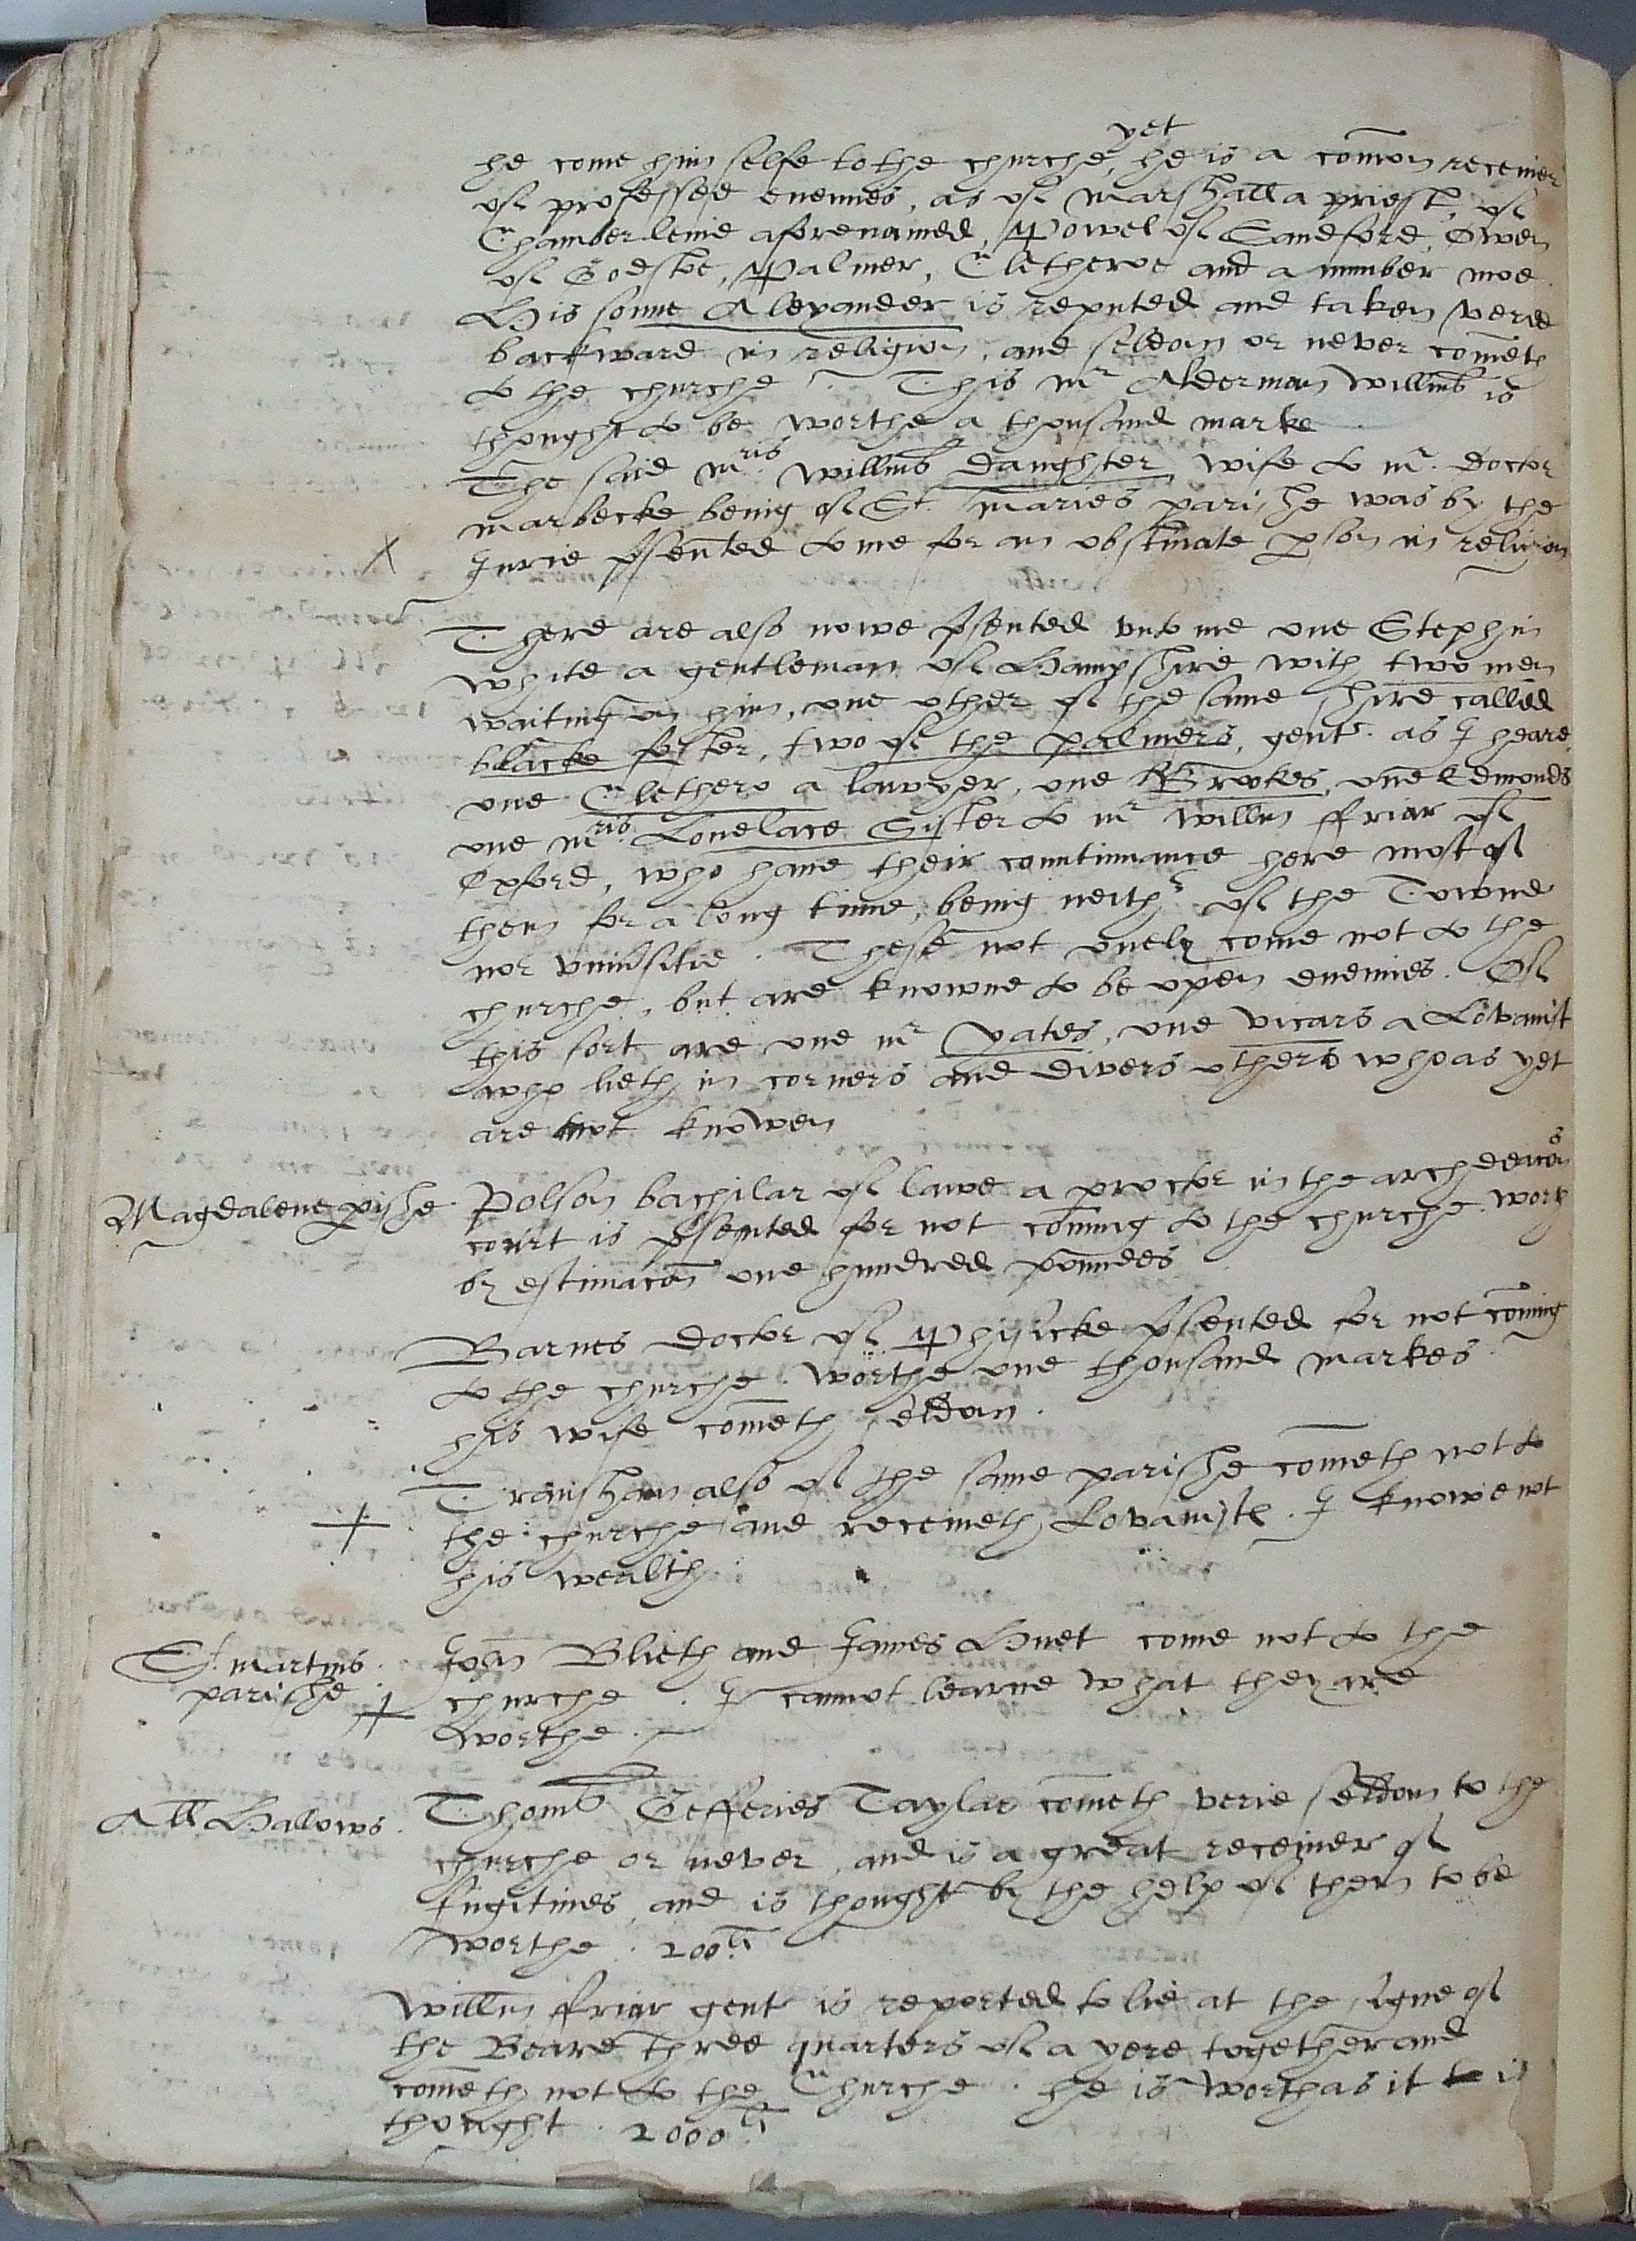 yet
he come him selfe to the churche, he is a comon receiuer
of professed enemies, as of Marshall a priest, of
Chamberleine aforenamed, Powel of Sandford, Owen
of Godstoe, Palmer, Cletheroe and a number moe.
His sonne Alexander is reputed and taken verie
backward in religion, and seldom or never cometh
to the churche. This mr Alderman Willms is
thought to be worthe a thousand marke
The said mris Willms daughter wife to mr. doctor
Marbecke being of St. Maries parishe was by the
X
Iurie psented to me for an obstinate pson in religion
There are also nowe psented vnto me one Stephin
White a gentleman of Hampshire with two men
waiting on him, one other of the same shire called
blacke foster, two of the palmers, gent. as I heare,
one Clethero a lawyer, one Brookes, one Edmonds
one mris. Louelace Sister to mr Willm ffriar of
Oxford, who haue their countinuance here most of
them for a long time, being neithr of the Towne
nor vniusitie. These not onely come not to the
churche, but are knowne to be open enemies. Of
this sort are one mr yates, one vicars a Lovanist
who lieth in corners and divers others who as yet
are not knowen
Magdalene pishe
Polson bachilar of lawe a proctor in the archdeacos
court is psented for not coming to the churche. worth
by estimacon one hundred poundes
Barnes doctor of Phisicke psented for not coming
to the churche. worthe one thousand markes.
his wife cometh seldom.
Transham also of the same parishe cometh not to
the churche and receiueth Lovanists. I knowe not
his wealth
St. martins
parishe
Joan Blieth and James Huet come not to the
churche. I cannot learne what they are
worthe.
All Hallows.
Thoms Gefferies Taylar cometh verie seldom to the
churche or never, and is a great receiuer of
fugitiues, and is thought by the help of them to be
worthe. 200li
Willm ffriar gent is reported to lie at the signe of
the Beare three quarters of a yere together and
cometh not to the Churche. he is worth as it is
thought. 2000li